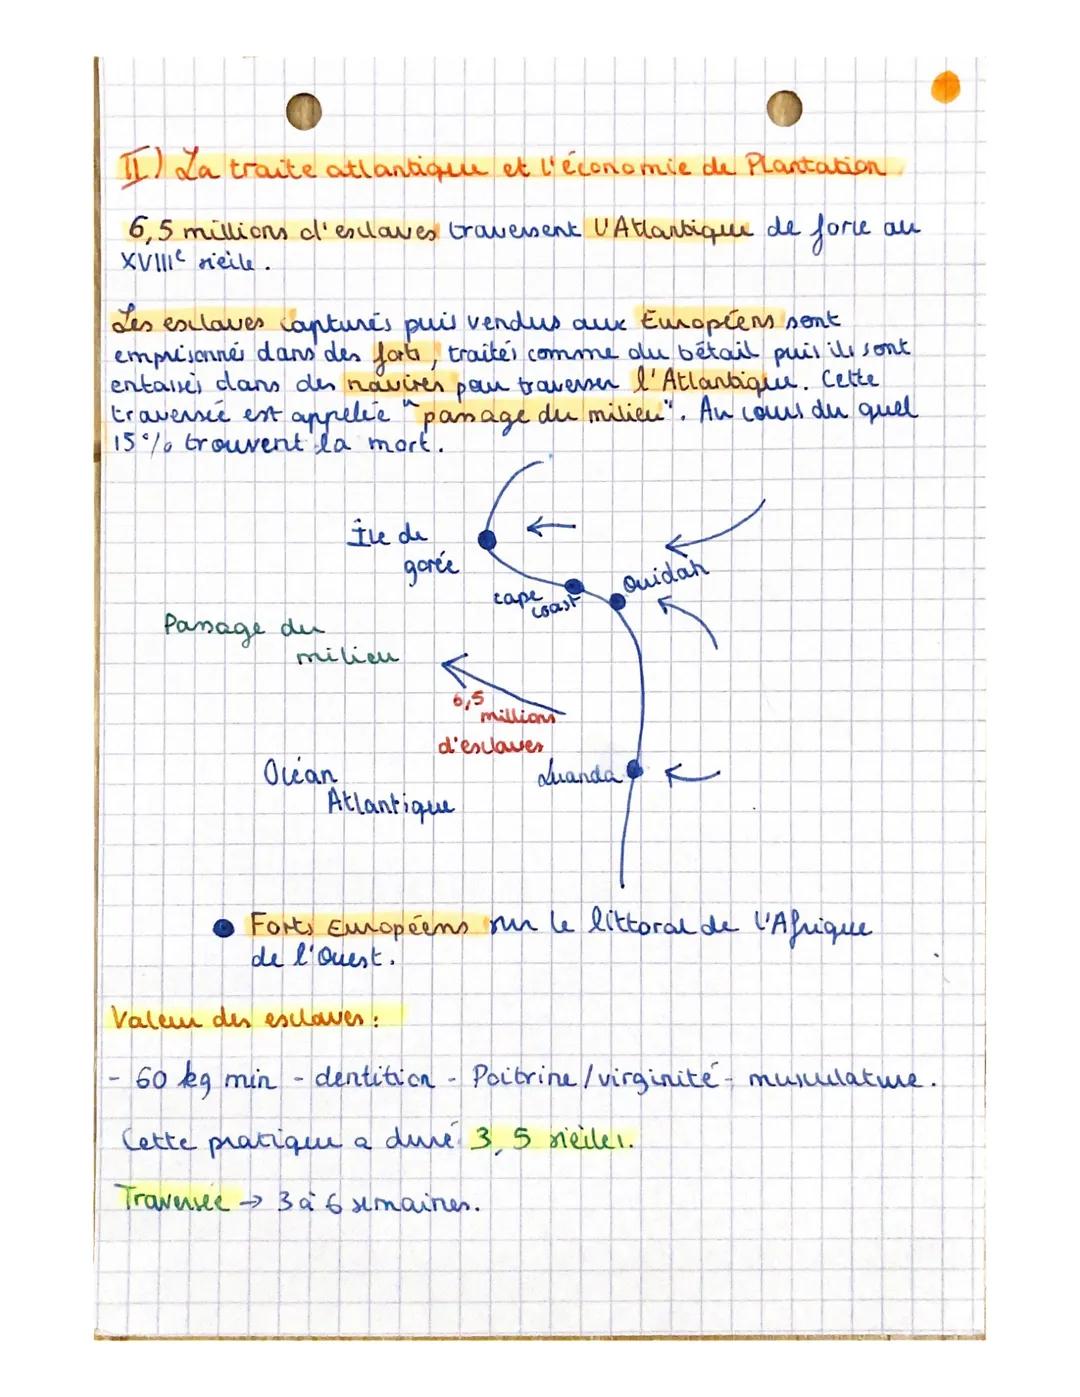 II) La traite atlantique et l'économie de Plantation
6,5 millions d'esclaves traversent l'Atlantique de force au
XVIIIe siècle.
Les esclaves capturés puis vendus aux Européens sont
emprisonnés dans des forts, traités comme du bétail puis ils sont
entassés dans des navires pour traverser l'Atlantique. Cette
traversée est appelée "passage du milieu". Au cours du quel
15% trouvent la mort.
Île de
gorée
cape
coast
Ouidah
Passage du
milieu
6,5
millions
d'esclaves
Luanda
Océan
Atlantique
Forts Européens sur le littoral de l'Afrique
de l'Ouest.
Valeur des esclaves :
- 60 kg min - dentition - Poitrine/virginité - musculature.
Cette pratique a duré 3,5 siècles.
Traversée → 3 à 6 semaines.